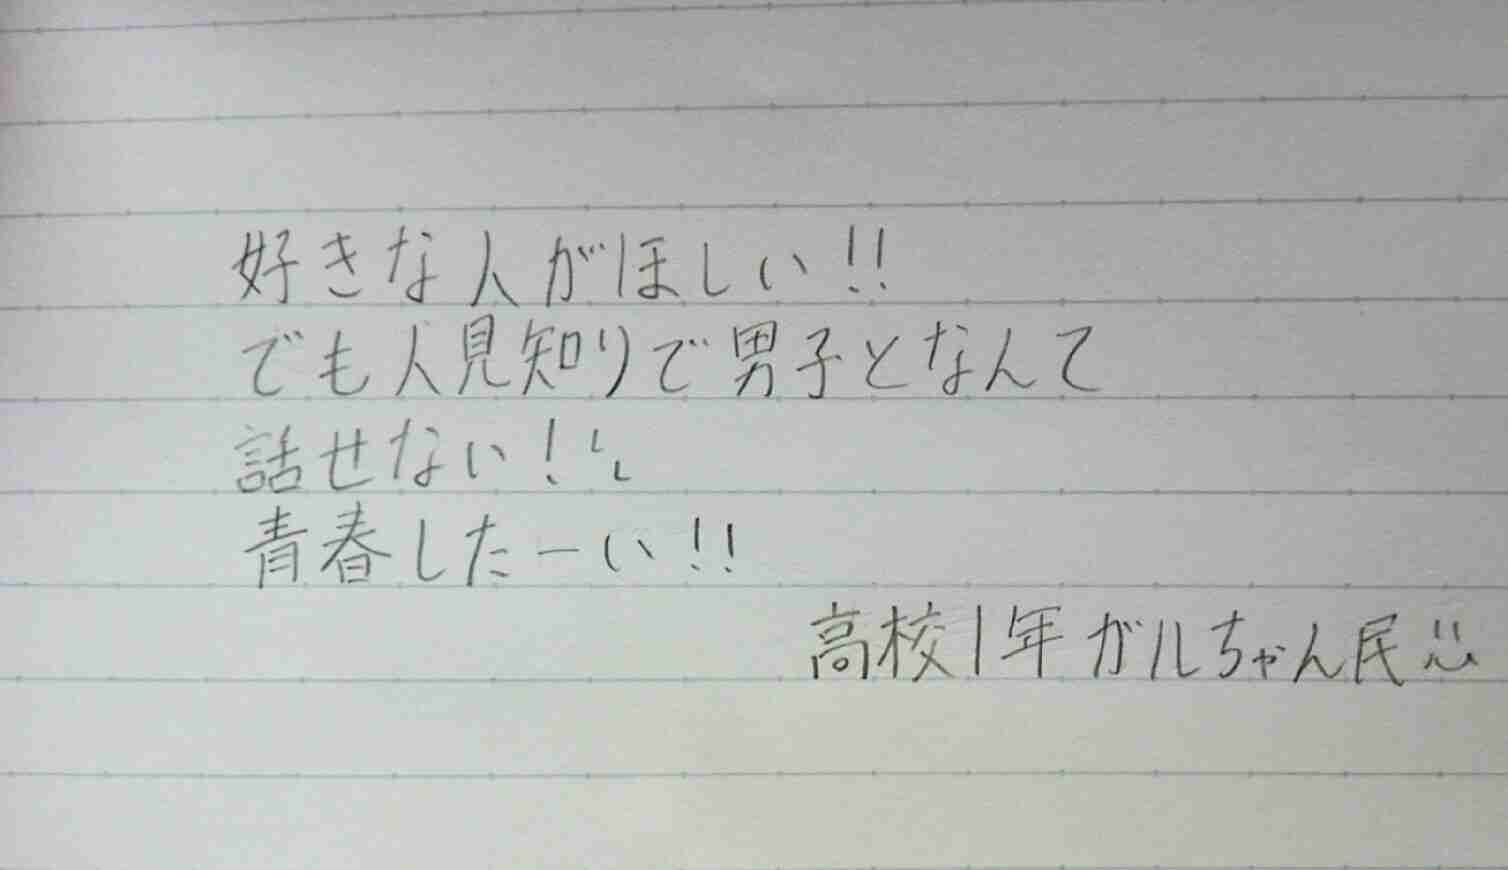 好きな人がほしい!!
でも人見知りで男子となんて
話せない!
青春したーい!!
高校1年 ガルちゃん民